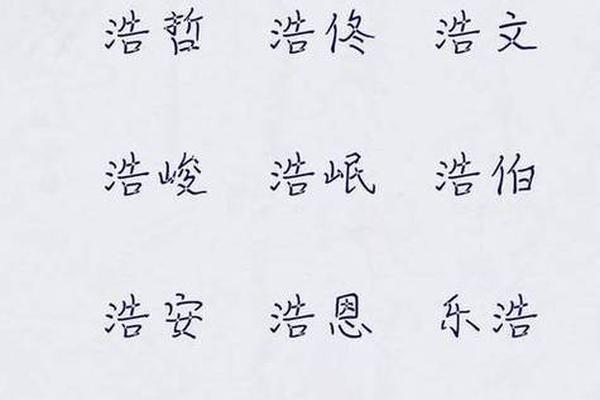 浩哲 浩佟 浩文
浩峻 浩岷 浩伯
浩安 浩恩 乐浩